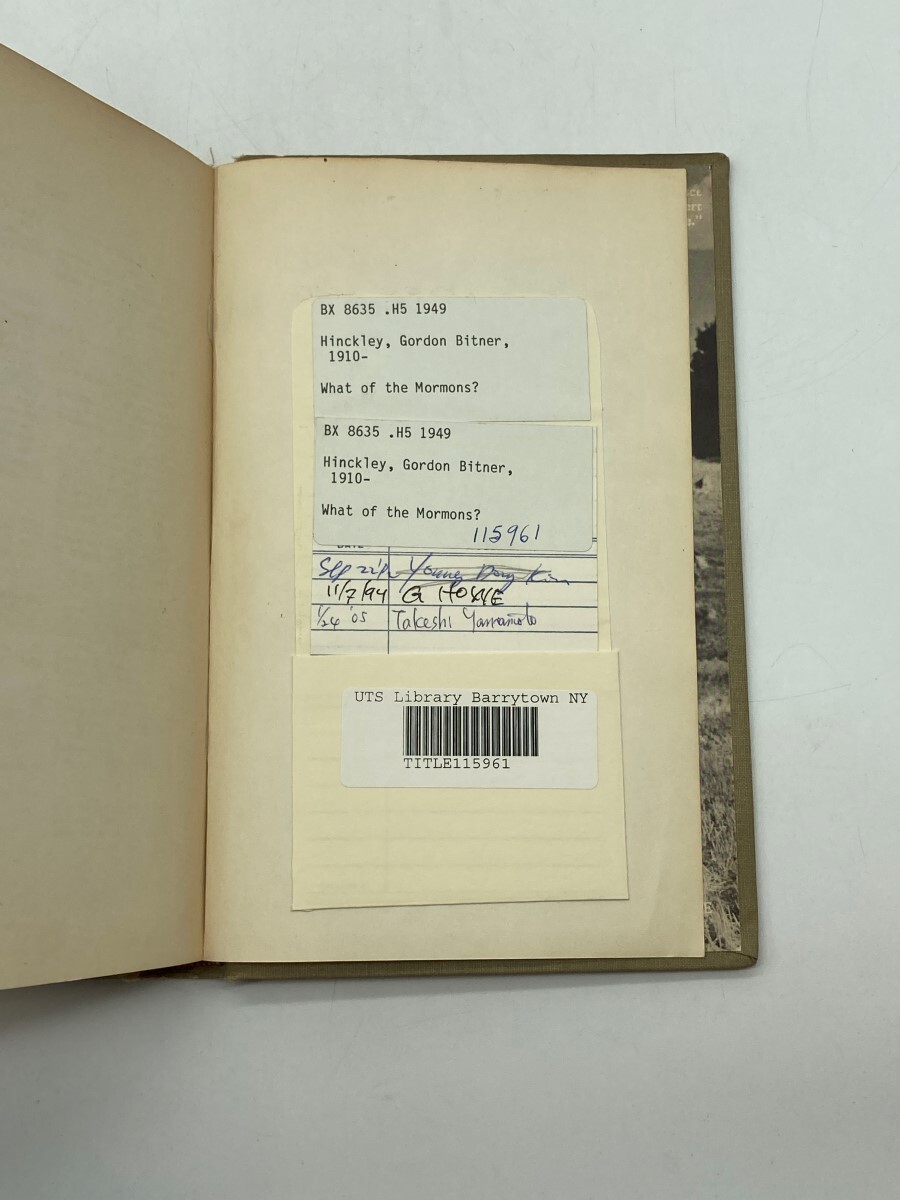 BX 8635 .H5 1949
Hinckley, Gordon Bitner,
1910-
What of the Mormons?
BX 8635 .H5 1949
Hinckley, Gordon Bitner,
1910-
What of the Mormons?
115961
DATE
Sep Young Kim
11/7/94 G
1/24 '05 Takeshi Yamamoto
UTS Library Barrytown NY
TITLE115961